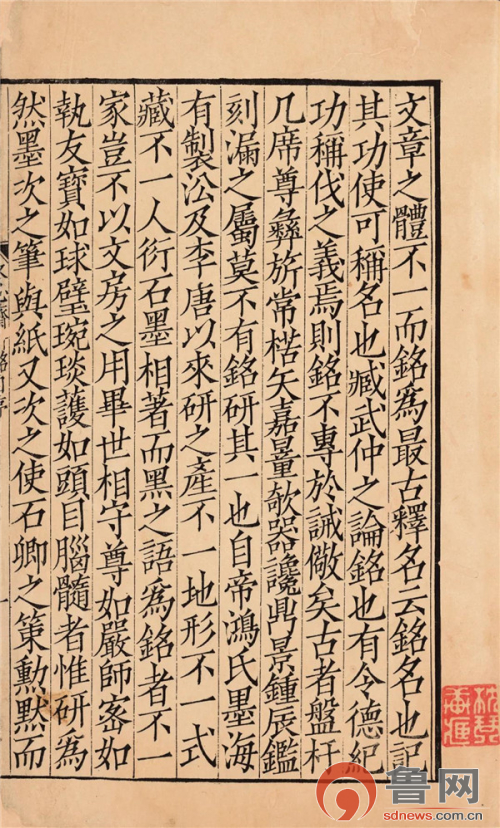 文章之體不一而銘爲最古釋名云銘名也記
其功使可稱名也臧武仲之論銘也有令德紀
功稱伐之義焉則銘不專於誡儆矣古者盤杅
几席尊彝旂常楛矢嘉量欹器讒鼎景鍾扆鑑
刻漏之屬莫不有銘研其一也自帝鴻氏墨海
有製㳂及李唐以來研之產不一地形不一式
藏不一人衍石墨相著而黑之語爲銘者不一
家豈不以文房之用畢世相守尊如嚴師宻如
執友寶如球璧琬琰護如頭目腦髓者惟研爲
然墨次之筆與紙又次之使石卿之策勳黙而
鲁网
sdnews.com.cn